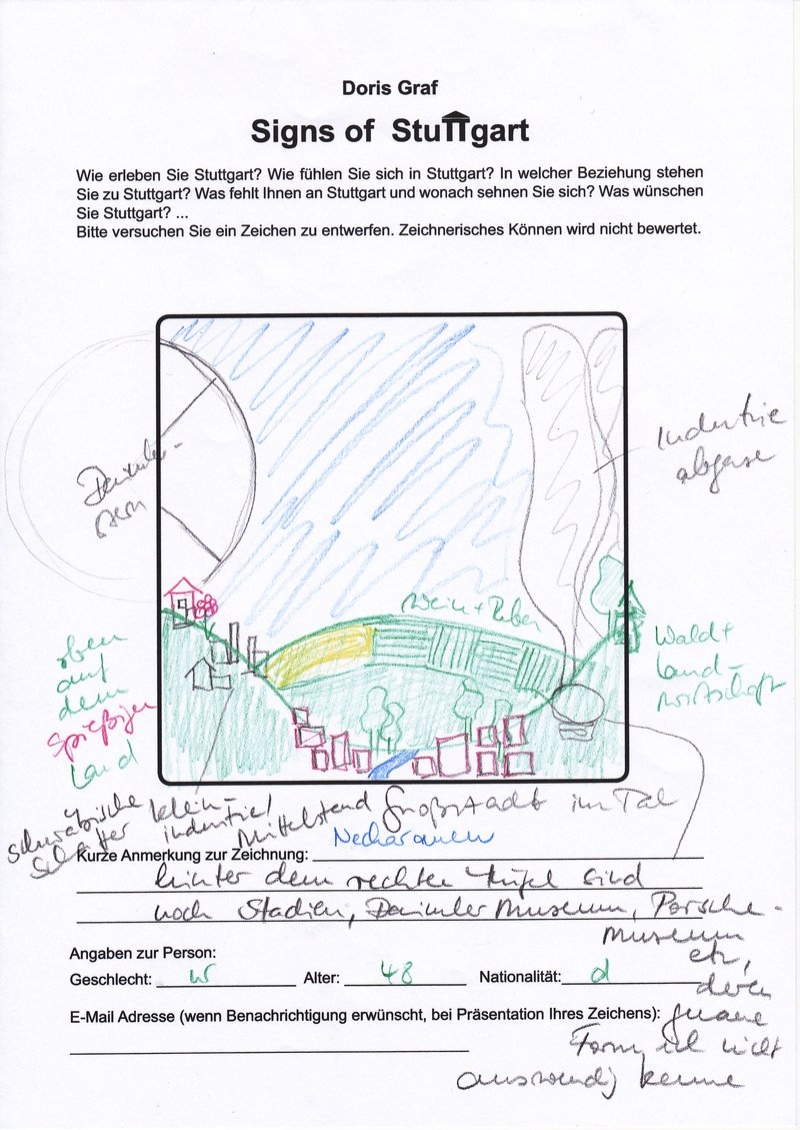 Doris Graf
Signs of Stuttgart
Wie erleben Sie Stuttgart? Wie fühlen Sie sich in Stuttgart? In welcher Beziehung stehen
Sie zu Stuttgart? Was fehlt Ihnen an Stuttgart und wonach sehnen Sie sich? Was wünschen
Sie Stuttgart? ...
Bitte versuchen Sie ein Zeichen zu entwerfen. Zeichnerisches Können wird nicht bewertet.
Daimler-
stern
Industrie
abgase
Wein + Reben
oben
auf
dem
spießigen
Land
Wald +
Land-
wirtschaft
schwäbische
klein-
industrie/
Mittelstand
Großstadt im Tal
Neckarauen
Kurze Anmerkung zur Zeichnung:
hinter dem rechten Hügel sind
noch Stadien, Daimler Museum, Porsche-
museum
etc,
deren
Angaben zur Person:
Geschlecht: w Alter: 48 Nationalität: d
E-Mail Adresse (wenn Benachrichtigung erwünscht, bei Präsentation Ihres Zeichens):
genaue
Form ich nicht
auswendig kenne